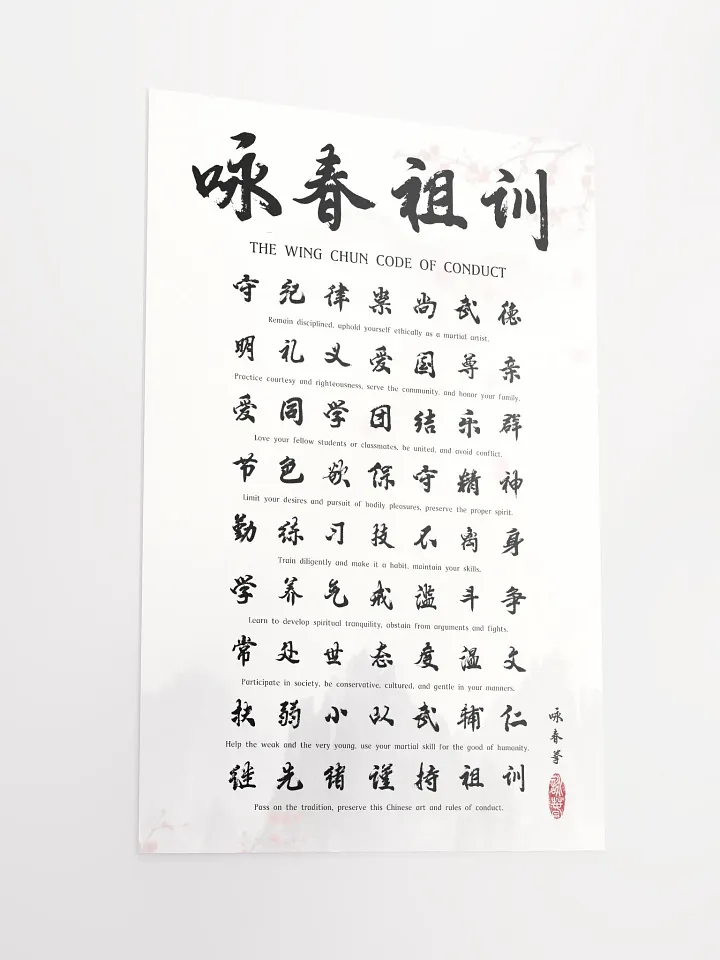 咏春祖训
THE WING CHUN CODE OF CONDUCT
守纪律崇尚武德
Remain disciplined, uphold yourself ethically as a martial artist.
明礼义爱国尊亲
Practice courtesy and righteousness, serve the community, and honor your family.
爱同学团结乐群
Love your fellow students or classmates, be united, and avoid conflict.
节色欲保守精神
Limit your desires and pursuit of bodily pleasures, preserve the proper spirit.
勤练习技不离身
Train diligently and make it a habit, maintain your skills.
学养气戒滥斗争
Learn to develop spiritual tranquility, abstain from arguments and fights.
常处世态度温文
Participate in society, be conservative, cultured, and gentle in your manners.
扶弱小以武辅仁
Help the weak and the very young, use your martial skill for the good of humanity.
继先绪谨持祖训
Pass on the tradition, preserve this Chinese art and rules of conduct.
咏春